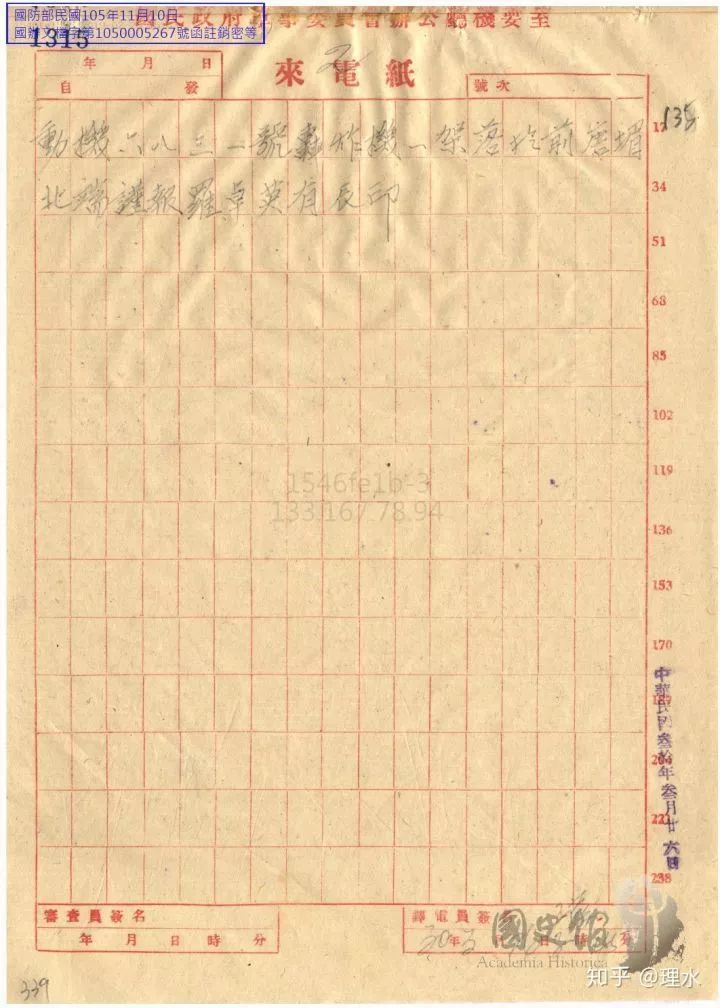 國防部民國105年11月10日
國辦文檔字第1050005267號函註銷密等
國民政府軍事委員會辦公廳機要室
1315
年 月 日
自 發
來電紙
號次
135
動機六八三一號轟炸機一架落於前唐堌
北端謹報羅卓英有辰印
17
34
51
68
85
102
119
136
153
170
221
238
1546fe1b-3
133.167.78.94
中華民國叁拾年叁月廿六日
審查員簽名
年 月 日 時 分
譯電員簽名
30年 日 分
國史館
Academia Historica
339
知乎 @理水